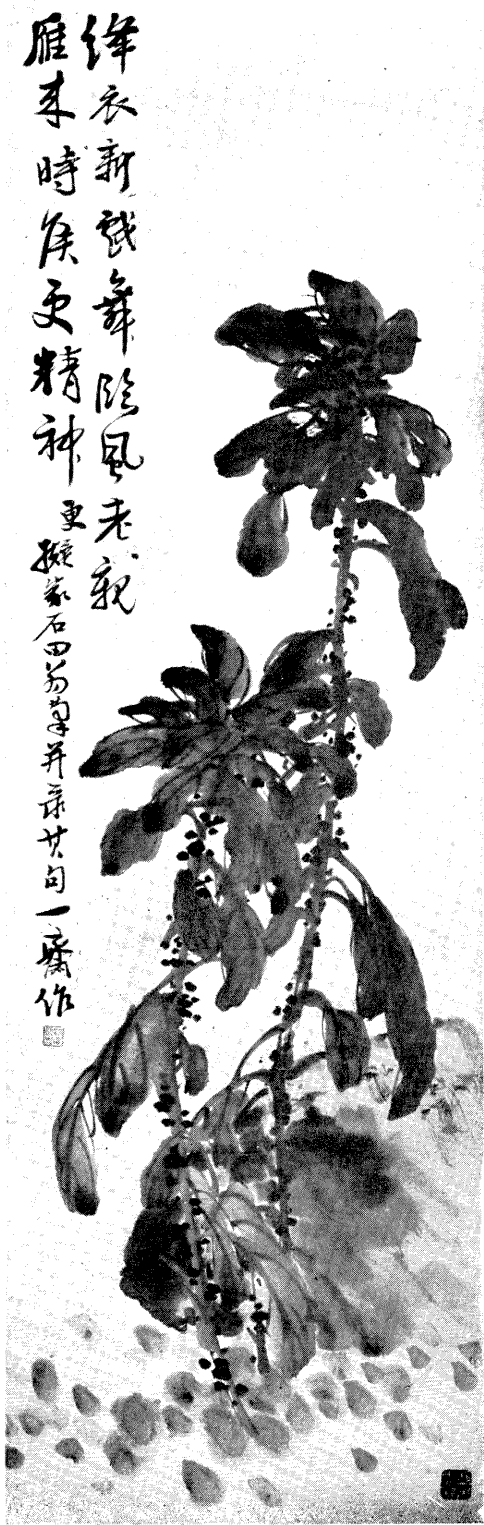 絳衣新舞臨風老
雁來時候更精神
更擬家石田翁筆并录其句一齋作